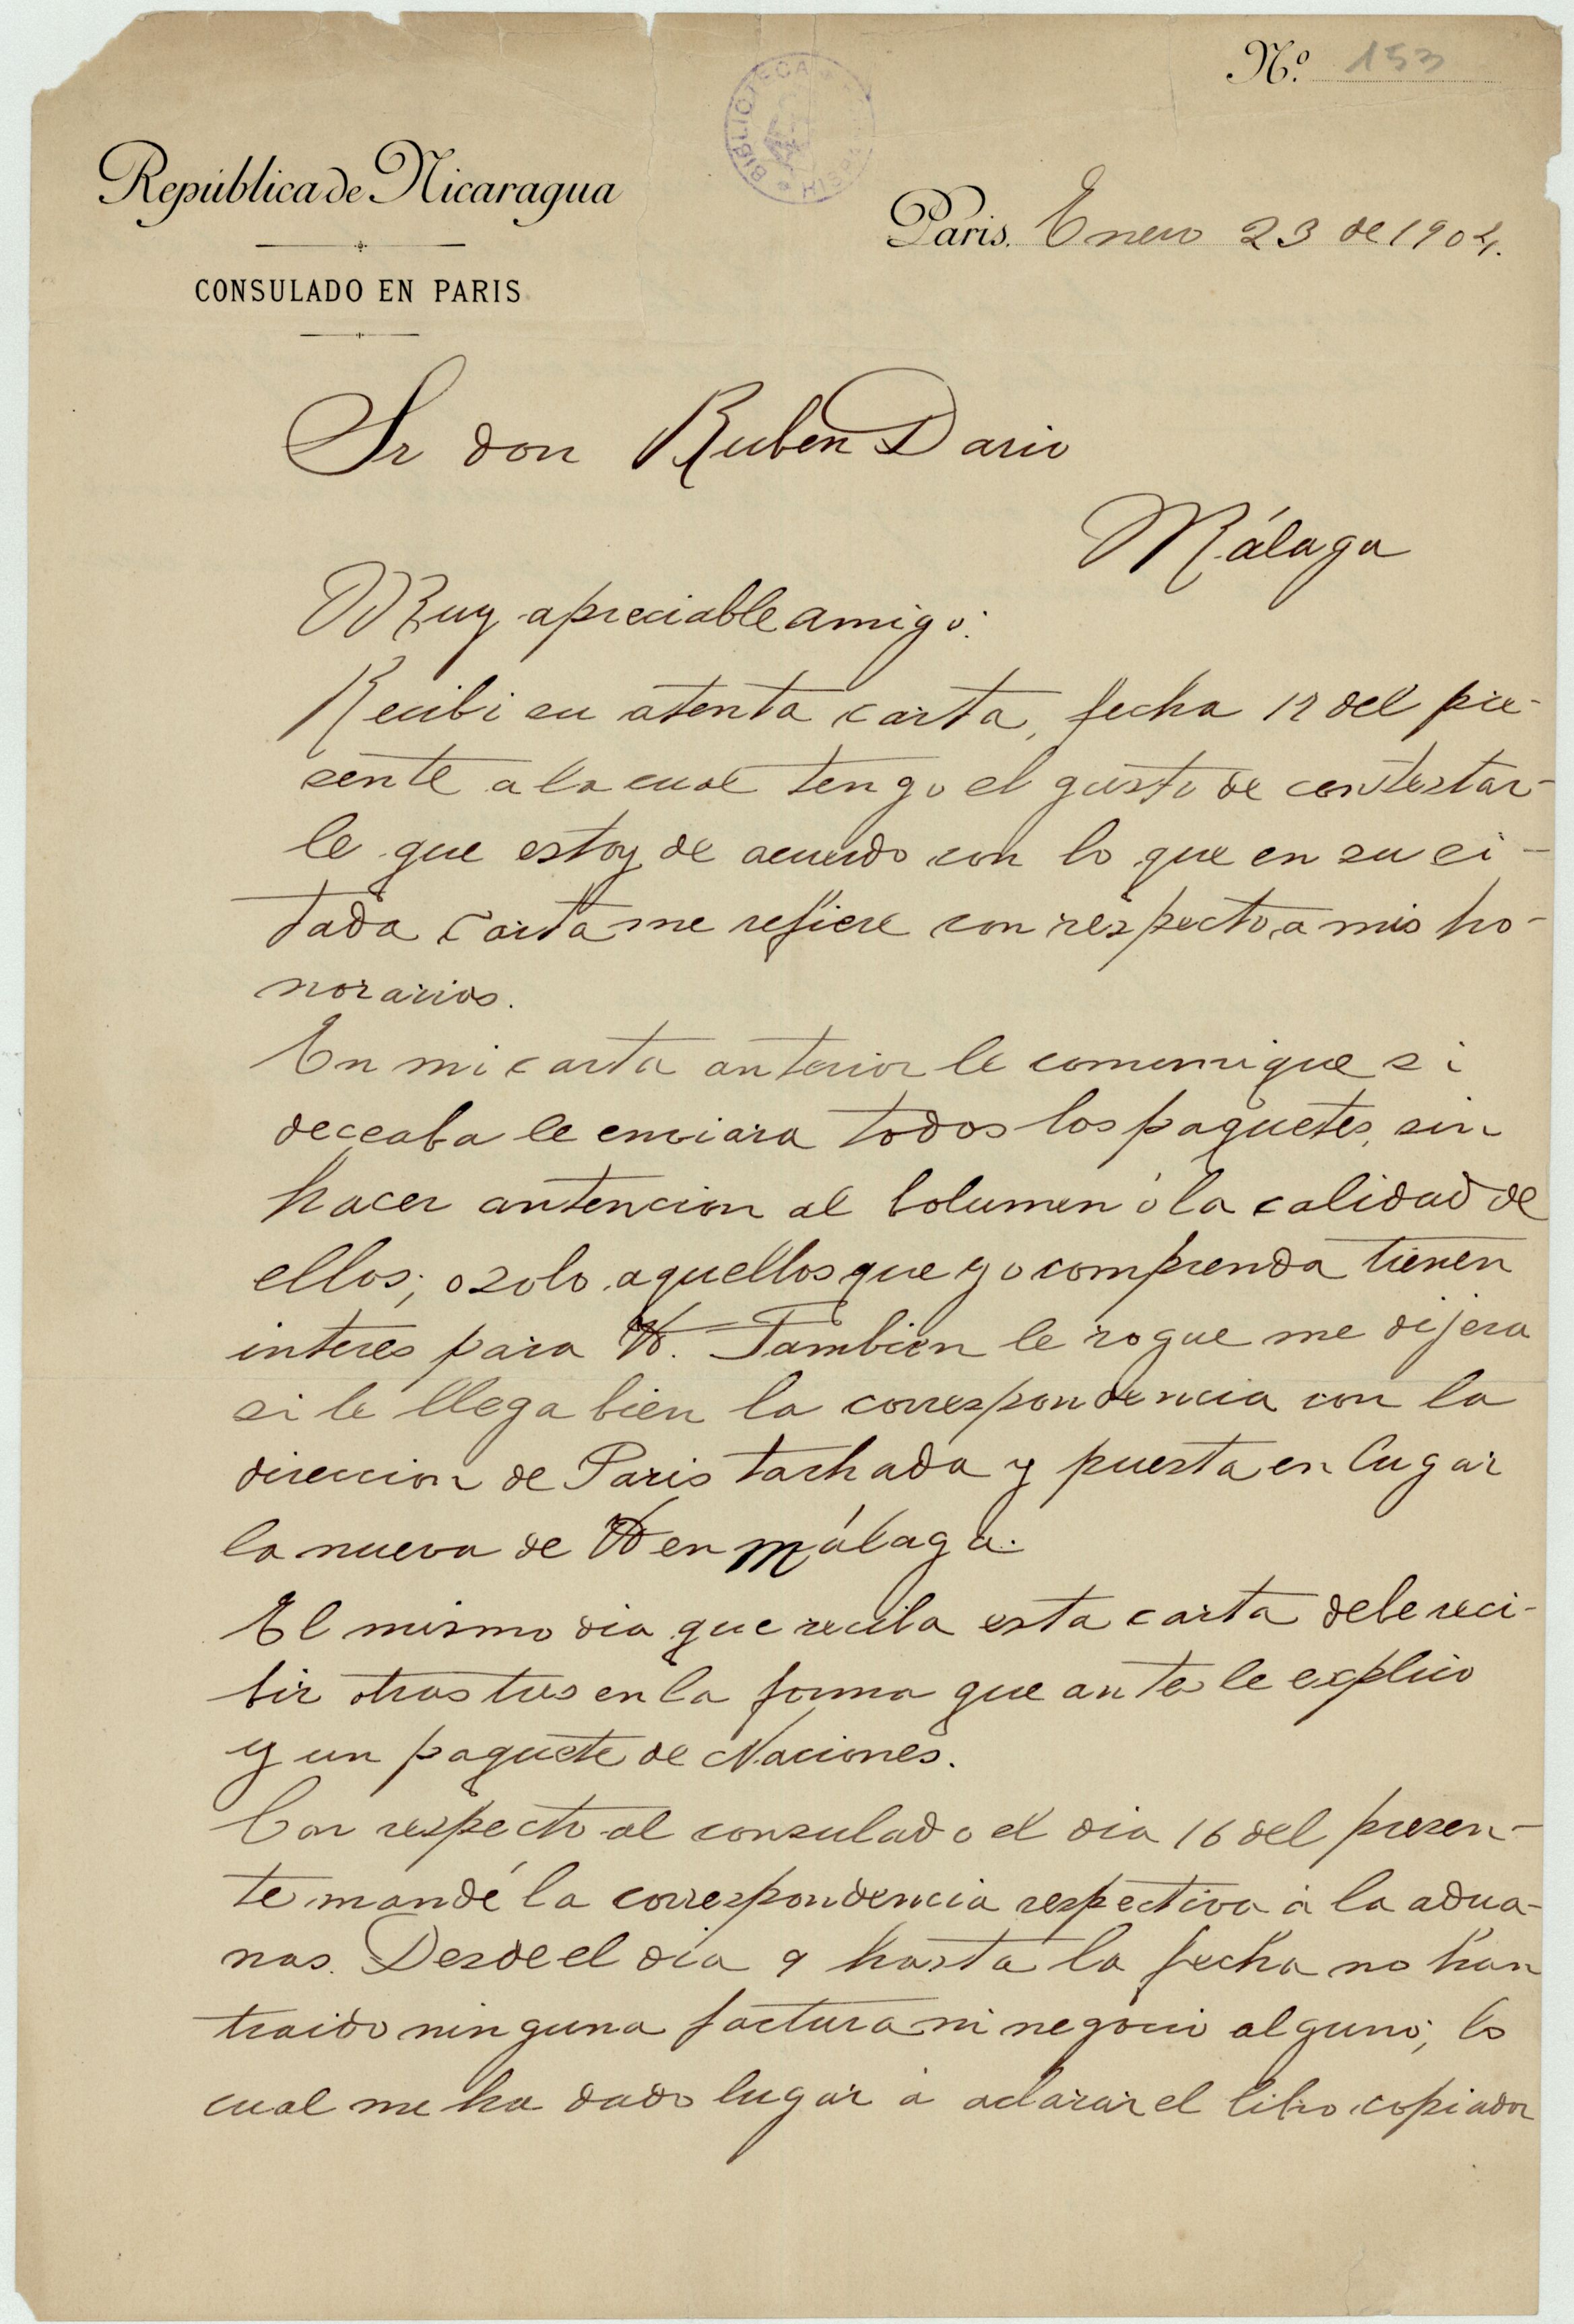 Nº 153
BIBLIOTECA
República de Nicaragua
CONSULADO EN PARIS
Paris. Enero 23 de 1904.
Sr don Ruben Dario
Málaga
Muy apreciable amigo:
Recibi su atenta carta, fecha 12 del pre-
sente a la cual tengo el gusto de contestar-
le que estoy de acuerdo con lo que en su ci-
tada carta me refiere con respecto a mis ho-
norarios.
En mi carta anterior le comunique si
deceaba le enviara todos los paquetes, sin
hacer antencion al bolumen ó la calidad de
ellos; o solo aquellos que yo comprenda tienen
interes para V. Tambien le rogue me dijera
si le llega bien la correspondencia con la
direccion de Paris tachada y puesta en lugar
la nueva de V en Málaga.
El mismo dia que reciba esta carta debe reci-
bir otras tres en la forma que antes le explico
y un paquete de Naciones.
Con respecto al consulado el dia 16 del presen-
te mandé la correspondencia respectiva á la adua-
nas. Desde el dia 9 hasta la fecha no han
traido ninguna factura ni negocio alguno; lo
cual me ha dado lugar á aclarar el libro copiador